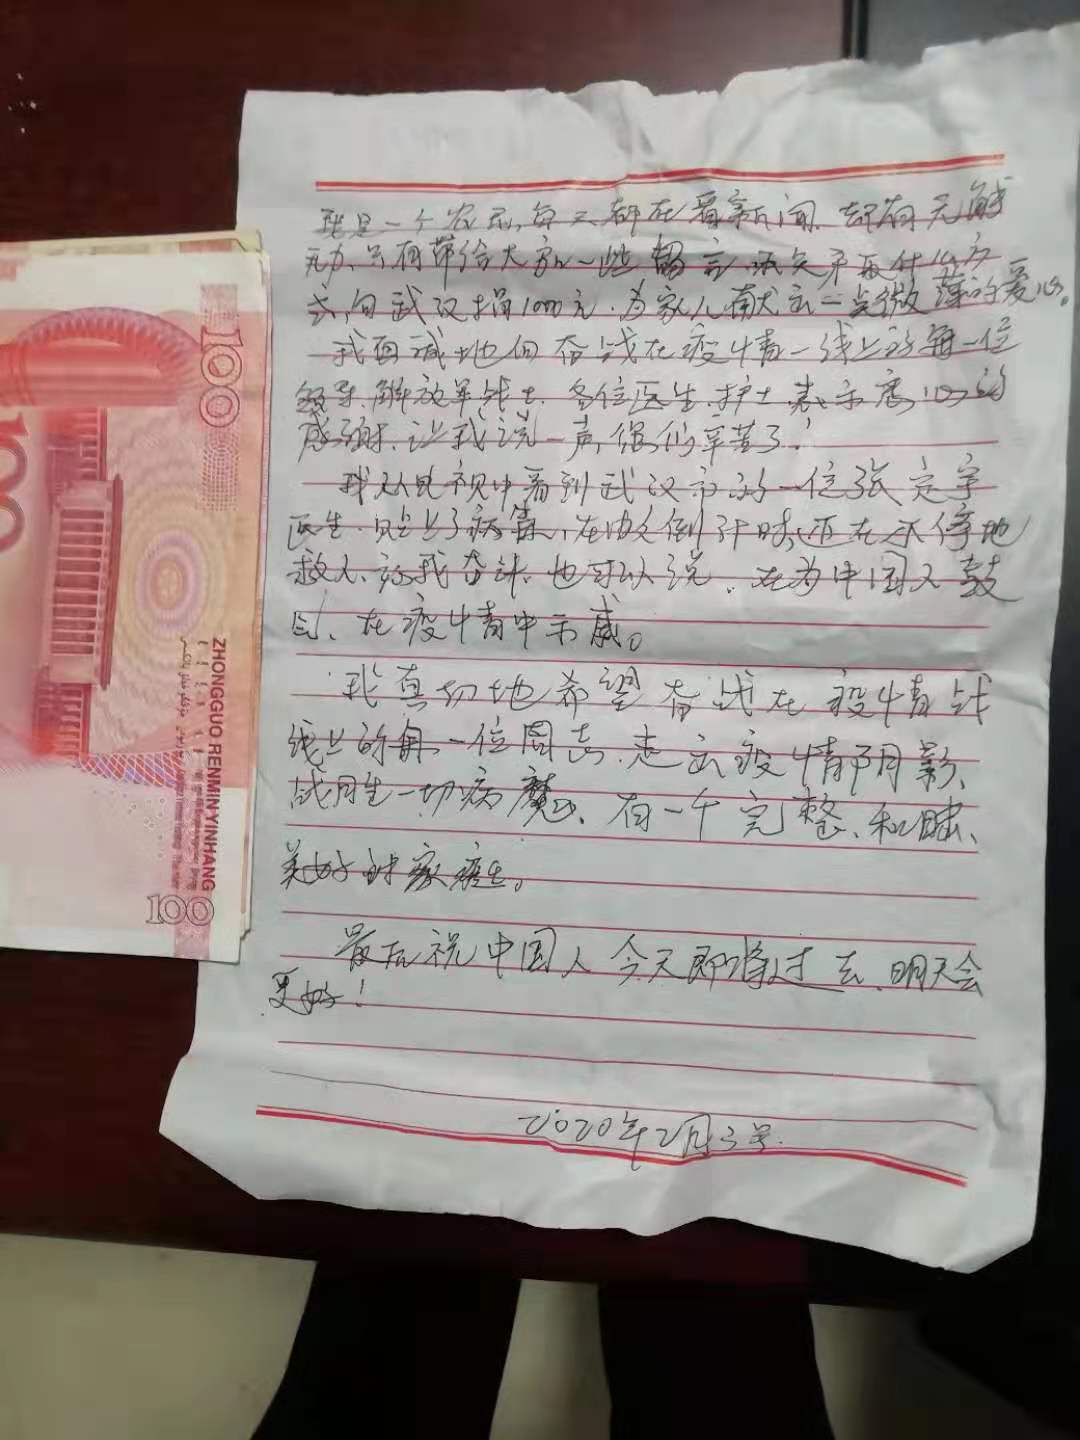 100
100
ZHONGGUO RENMIN YINHANG
100
我是一个农民,每天都在看新闻,却有无能
无力,只有带给大家一些留言,
式,向武汉捐1000元,为家人献出一点微薄的爱心。
我真诚地向奋战在疫情一线上的每一位
领导、解放军战士、各位医生、护士表示衷心的
感谢,让我说一声,您们辛苦了!
我从电视中看到武汉市的一位张定宇
医生,患上了病,在内倒计时,还在不停地
救人,奋斗,也可以说,在为中国人鼓
,在疫情中示威。
我真切地希望奋战在疫情战
线上的每一位同志,走出疫情阴影、
战胜一切病魔、有一个完整、和睦、
美好的家庭。
最后祝中国人今天即将过去,明天会
更好!
2020年2月3号